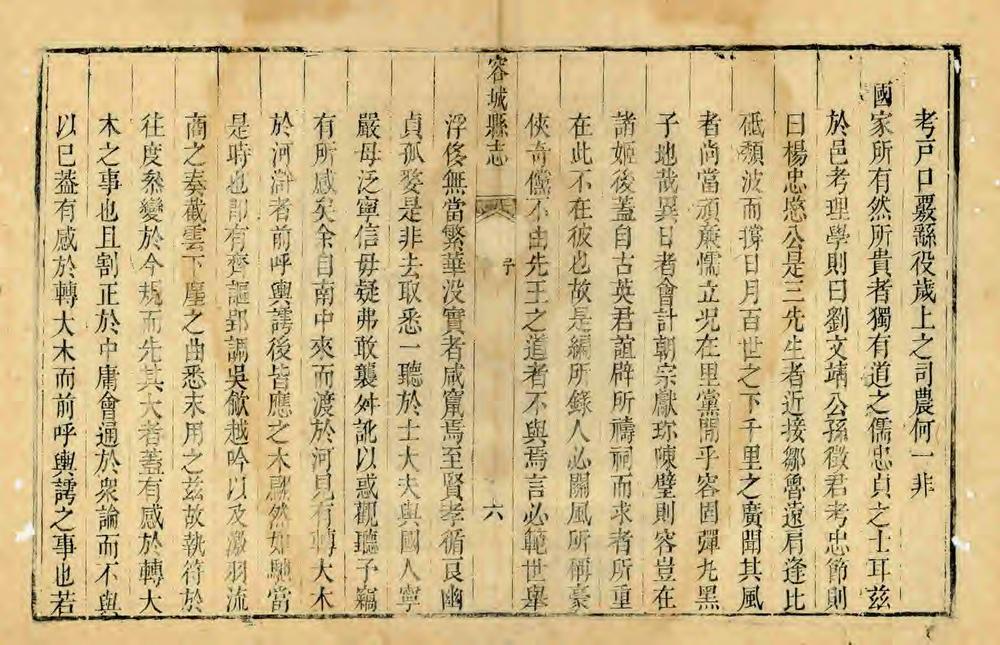 考戸口覈繇役歲上之司農何一非
國家所有然所貴者獨有道之儒忠貞之士耳兹
於邑考理學則曰劉文靖公孫徵君考忠節則
曰楊忠愍公是三先生者近接鄒魯遠肩逢比
砥頽波而撐日月百世之下千里之廣聞其風
者尚當頑亷懦立况在里黨閒乎容固彈丸黑
子地哉異日者會計朝宗獻琛陳璧則容豈在
諸姬後蓋自古英君誼辟所禱祠而求者所重
在此不在彼也故是編所錄人必關風所稱豪
俠奇儻不由先王之道者不與焉言必範世舉
容城縣志
序
六
浮侈無當繁華没實者咸竄焉至賢孝循良幽
貞孤嫠是非去取悉一聽於士大夫與國人寧
嚴毋泛寧信毋疑弗敢襲舛訛以惑觀聽予竊
有所感矣余自南中來而渡於河見有轉大木
於河滸者前呼輿謣後皆應之木翻然如馳當
是時也卽有齊謳郢調吳歈越吟以及激羽流
商之奏截雲下塵之曲悉未用之兹故執符於
往度叅變於今規而先其大者蓋有感於轉大
木之事也且割正於中庸會通於衆論而不與
以巳葢有感於轉大木而前呼輿謣之事也若